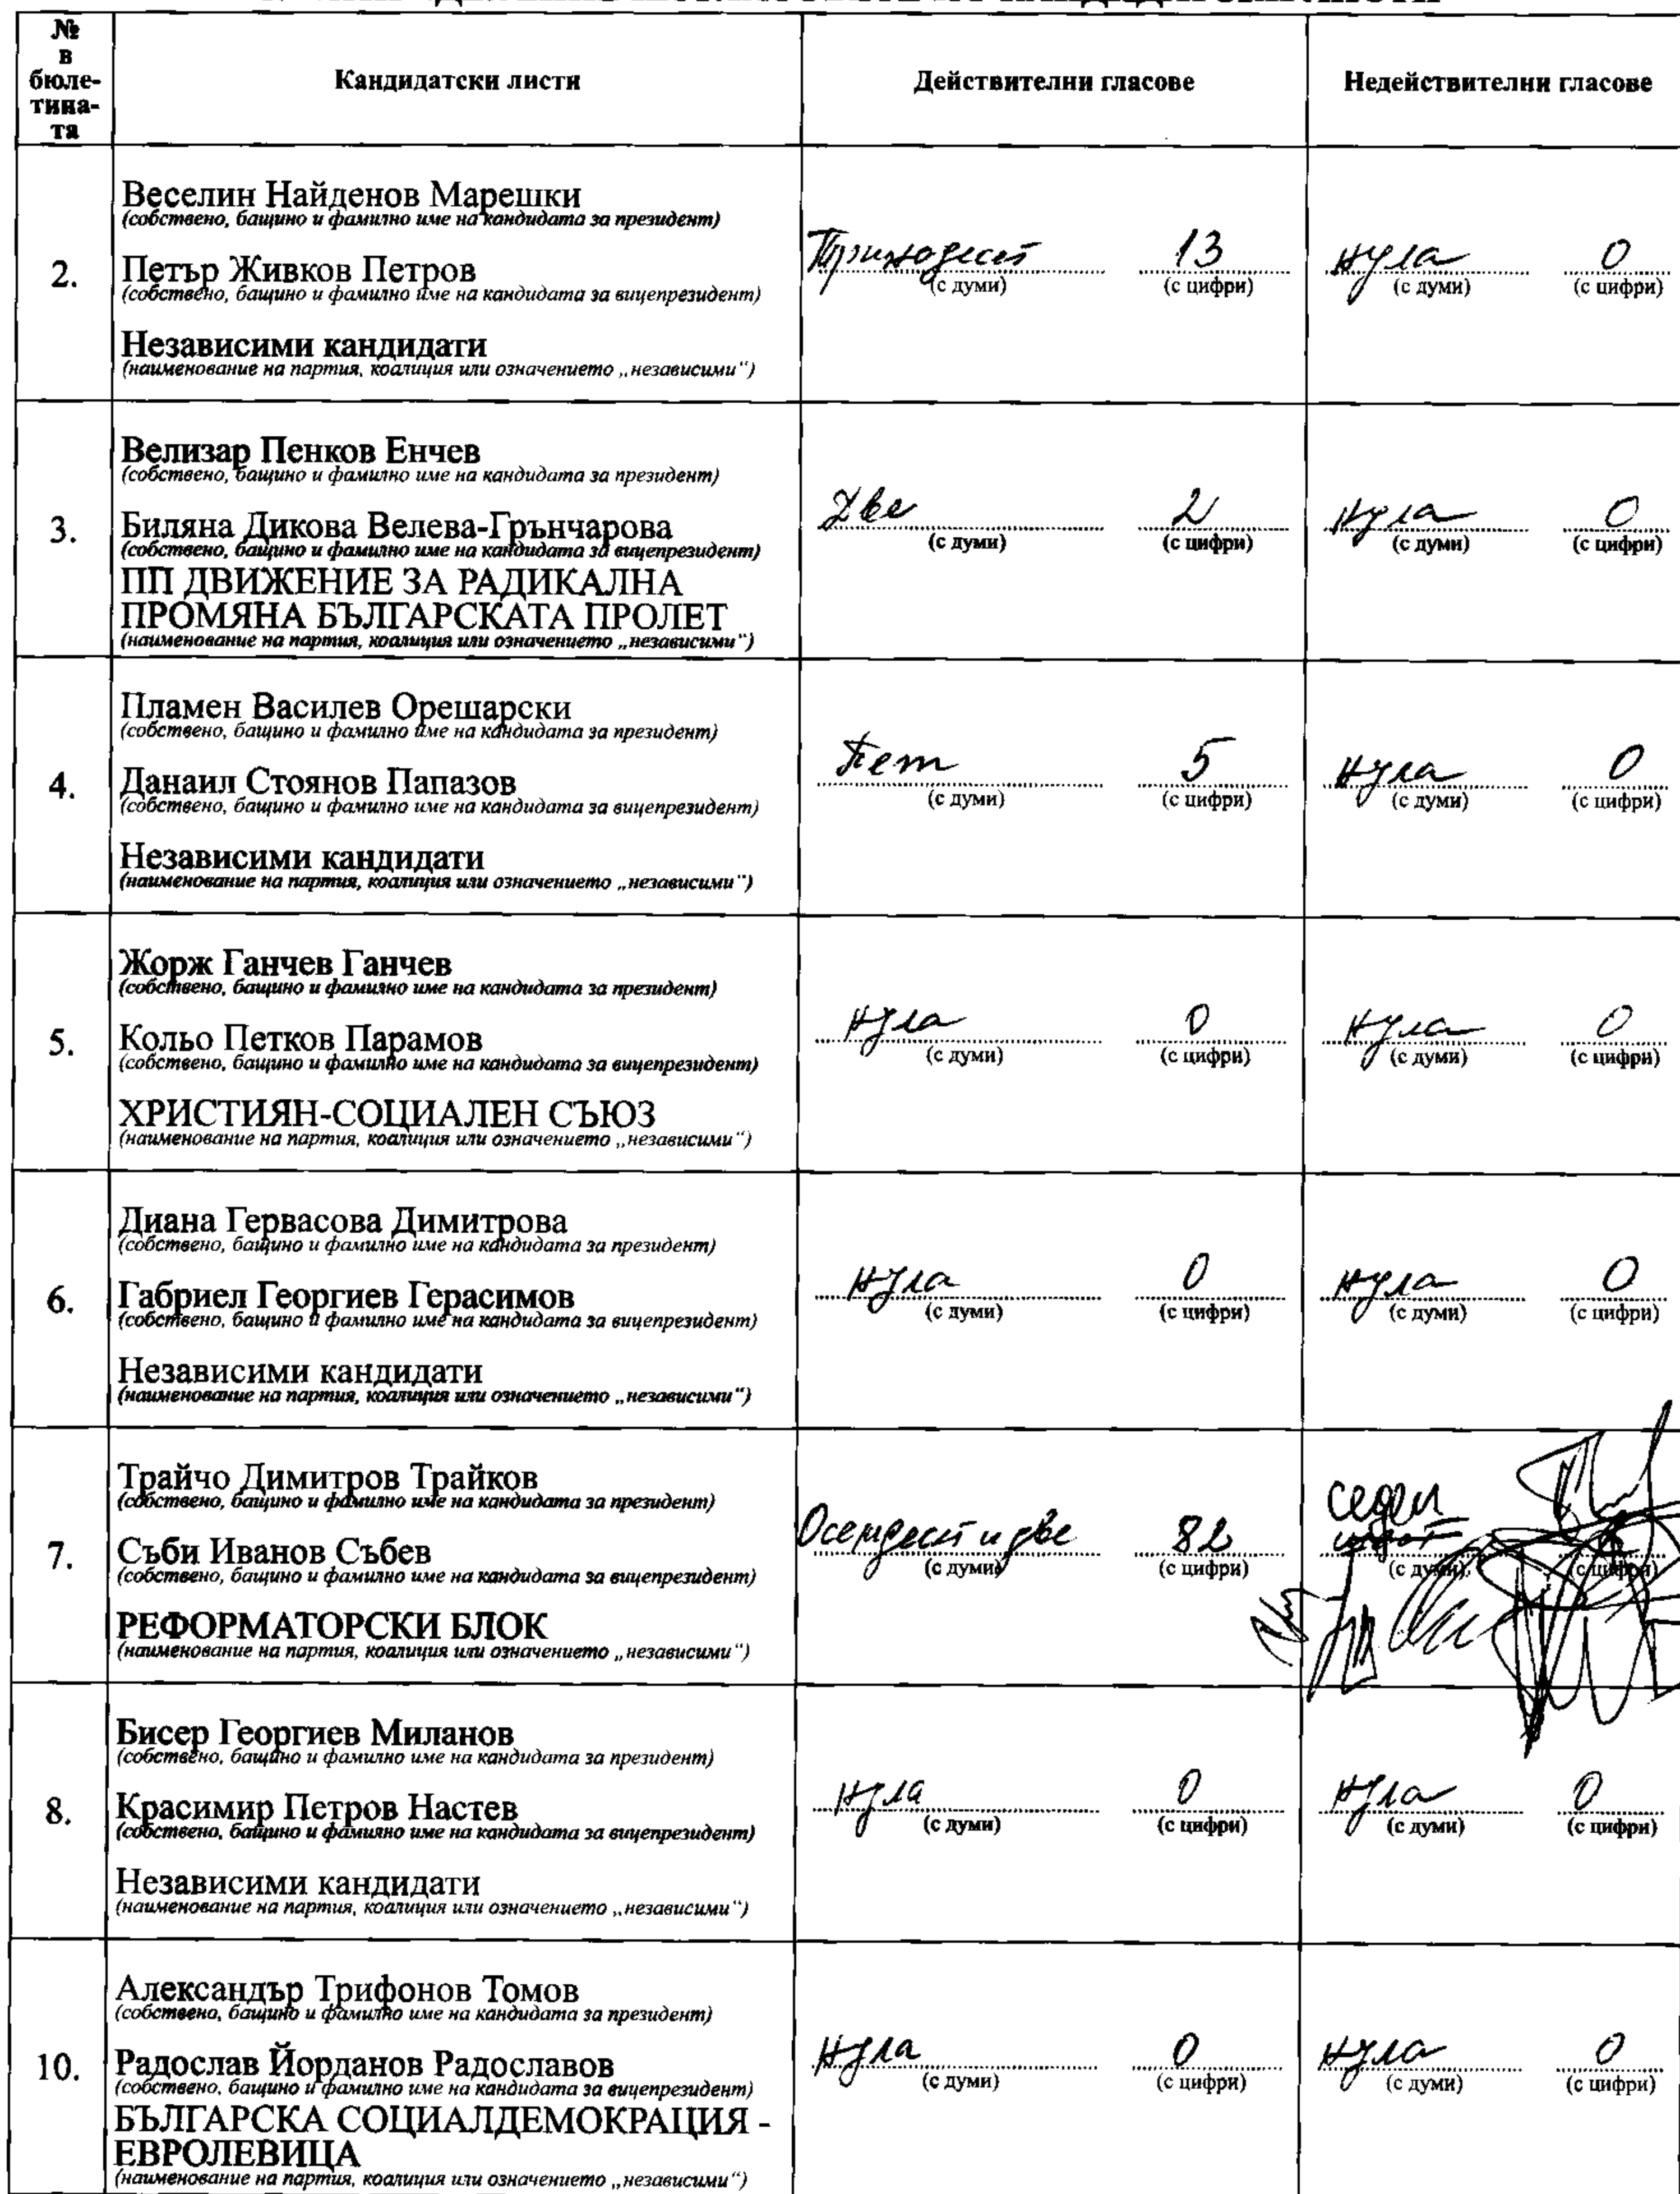 №
в
бюле-
тина-
та
Кандидатски листи
Действителни гласове
Недействителни гласове
2.
Веселин Найденов Марешки
(собствено, бащино и фамилно име на кандидата за президент)
Петър Живков Петров
(собствено, бащино и фамилно име на кандидата за вицепрезидент)
Независими кандидати
(наименование на партия, коалиция или означението „независими“)
Тринадесет 13 нула 0
(с думи) (с цифри) (с думи) (с цифри)
3.
Велизар Пенков Енчев
(собствено, бащино и фамилно име на кандидата за президент)
Биляна Дикова Велева-Грънчарова
(собствено, бащино и фамилно име на кандидата за вицепрезидент)
ПП ДВИЖЕНИЕ ЗА РАДИКАЛНА
ПРОМЯНА БЪЛГАРСКАТА ПРОЛЕТ
(наименование на партия, коалиция или означението „независими“)
Две 2 нула 0
(с думи) (с цифри) (с думи) (с цифри)
4.
Пламен Василев Орешарски
(собствено, бащино и фамилно име на кандидата за президент)
Данаил Стоянов Папазов
(собствено, бащино и фамилно име на кандидата за вицепрезидент)
Независими кандидати
(наименование на партия, коалиция или означението „независими“)
Пет 5 нула 0
(с думи) (с цифри) (с думи) (с цифри)
5.
Жорж Ганчев Ганчев
(собствено, бащино и фамилно име на кандидата за президент)
Кольо Петков Парамов
(собствено, бащино и фамилно име на кандидата за вицепрезидент)
ХРИСТИЯН-СОЦИАЛЕН СЪЮЗ
(наименование на партия, коалиция или означението „независими“)
нула 0 нула 0
(с думи) (с цифри) (с думи) (с цифри)
6.
Диана Гервасова Димитрова
(собствено, бащино и фамилно име на кандидата за президент)
Габриел Георгиев Герасимов
(собствено, бащино и фамилно име на кандидата за вицепрезидент)
Независими кандидати
(наименование на партия, коалиция или означението „независими“)
нула 0 нула 0
(с думи) (с цифри) (с думи) (с цифри)
7.
Трайчо Димитров Трайков
(собствено, бащино и фамилно име на кандидата за президент)
Съби Иванов Събев
(собствено, бащино и фамилно име на кандидата за вицепрезидент)
РЕФОРМАТОРСКИ БЛОК
(наименование на партия, коалиция или означението „независими“)
Осемдесет и две 82 седем
(с думи) (с цифри) (с думи) (с цифри)
8.
Бисер Георгиев Миланов
(собствено, бащино и фамилно име на кандидата за президент)
Красимир Петров Настев
(собствено, бащино и фамилно име на кандидата за вицепрезидент)
Независими кандидати
(наименование на партия, коалиция или означението „независими“)
нула 0 нула 0
(с думи) (с цифри) (с думи) (с цифри)
10.
Александър Трифонов Томов
(собствено, бащино и фамилно име на кандидата за президент)
Радослав Йорданов Радославов
(собствено, бащино и фамилно име на кандидата за вицепрезидент)
БЪЛГАРСКА СОЦИАЛДЕМОКРАЦИЯ -
ЕВРОЛЕВИЦА
(наименование на партия, коалиция или означението „независими“)
нула 0 нула 0
(с думи) (с цифри) (с думи) (с цифри)